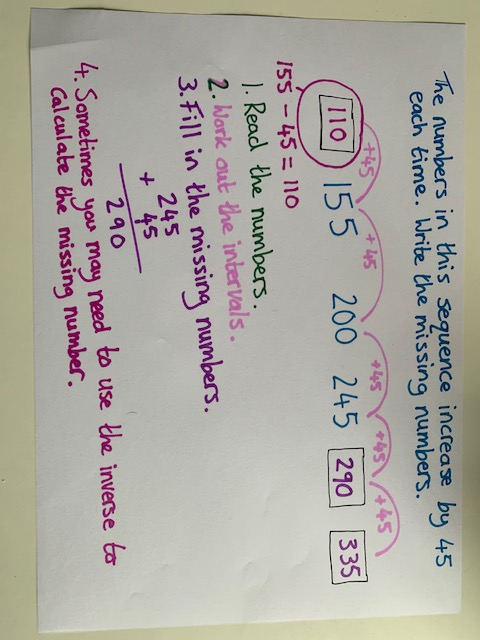 The numbers in this sequence increase by 45
each time. Write the missing numbers.
+45 +45 +45 +45 +45
110 155 200 245 290 335
155 - 45 = 110
1. Read the numbers.
2. Work out the intervals.
3. Fill in the missing numbers.
245
+ 45
290
4. Sometimes you may need to use the inverse to
calculate the missing number.